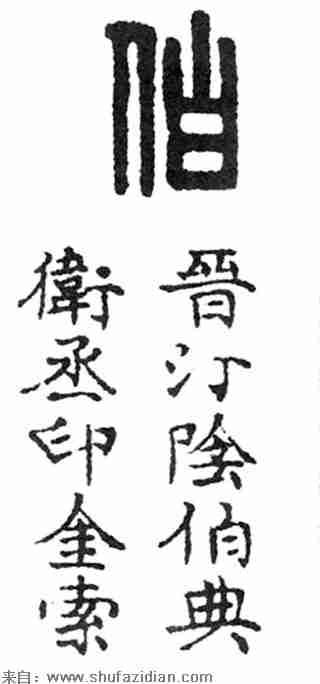 伯
晉汾陰伯典
衛丞印金索
来自：www.shufazidian.com